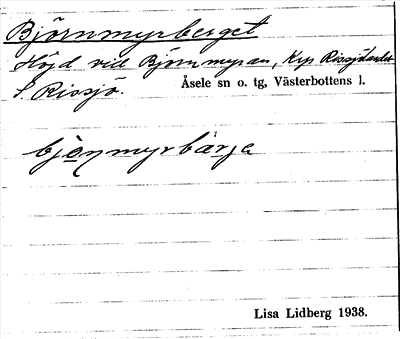 Björnmyrberget
Höjd vid Björnmyran, Krp Rissjölandet
S. Rissjö.
Åsele sn o. tg, Västerbottens l.
bjo̲ɳmyrbær̲je
Lisa Lidberg 1938.